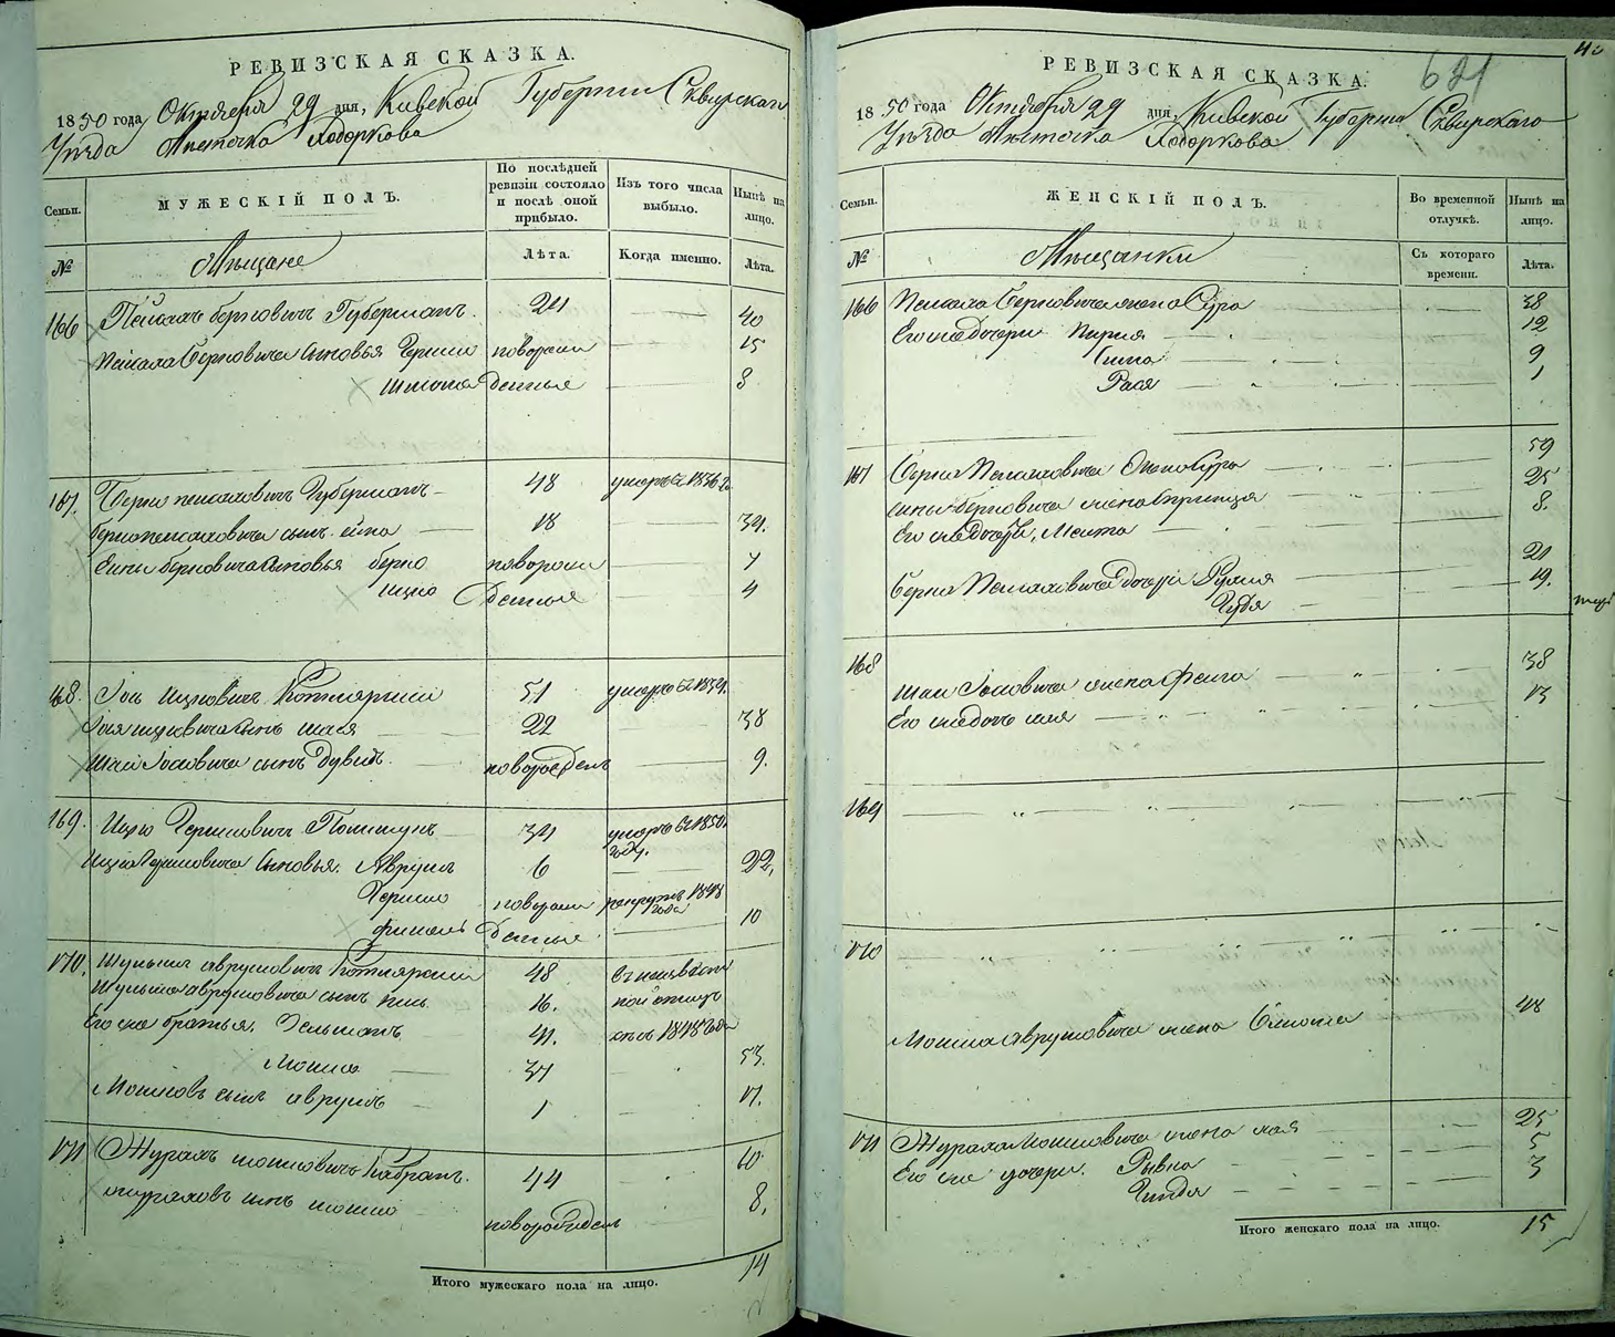 РЕВИЗСКАЯ СКАЗКА.
1850 года Октября 29 дня, Киевской Губернии Сквирскаго
Уѣзда Мѣстечка Ходоркова
Семьи.
МУЖЕСКІЙ ПОЛЪ.
По послѣдней ревизіи состояло и послѣ оной прибыло.
Изъ того числа выбыло.
Нынѣ на лицо.
№
Мѣщане
Лѣта.
Когда именно.
Лѣта.
166 Пейсахъ Берковичъ Губерманъ 24 — 40
Пейсаха Берковича сыновья Гершко новорож 15
Шмома денные 8
167. Берко Пейсаховичъ Губерманъ 48 умеръ въ 1836 г.
Берко Пейсаховича сынъ 18 — 34.
Берковича сыновья Берко новорож 7
Ицко денные 4
168. Іось Ицковичъ Котлярский 51 умеръ въ 1839.
Іося Ицковича сынъ Шая 22 — 38
Шаи Іосовича сынъ Дувидъ новорожденъ 9.
169. Ицко Гершковичъ 34 умеръ въ 1850 году.
Ицка Гершковича сыновья. Аврумъ 6 — 22,
Гершко новорож рекрутъ 1848 года
Фишель денные 10
170. Шульма Аврумовичъ Котлярский 48 въ неизвѣст
Шульма Аврумовича сынъ 16. ной отлуч
Его же братья. Зельманъ 41. кѣ съ 1845 года
Мошко 37 53.
Мошковъ сынъ Аврумъ 1 — 17.
171 Журахъ Мошковичъ 44 — 60
Жураховъ сынъ Мошко новорожденъ 8,
Итого мужескаго пола на лицо. 14
40
РЕВИЗСКАЯ СКАЗКА.
1850 года Октября 29 дня, Киевской Губерніи Сквирскаго
Уѣзда Мѣстечка Ходоркова
Семьи.
ЖЕНСКІЙ ПОЛЪ.
Во временной отлучкѣ.
Нынѣ на лицо.
№
Мѣщанки
Съ котораго времени.
Лѣта.
166 Пейсаха Берковича жена Сура 38
Его же дочери 12
Сима 9
Рася 1
167 Берка Пейсаховича жена Сура 59
Берковича жена Стринца 25
Его же дочерь, 8.
Берка Пейсаховича дочери 21
Гудя 19.
168
Шаи Іосовича жена Фейга 38
Его же дочь 13
169
170
Мошка Аврумовича жена 48
171 Жураха Мошковича жена Хая 25
Его же дочери. Рывка 5
Гитля 3
Итого женскаго пола на лицо. 15